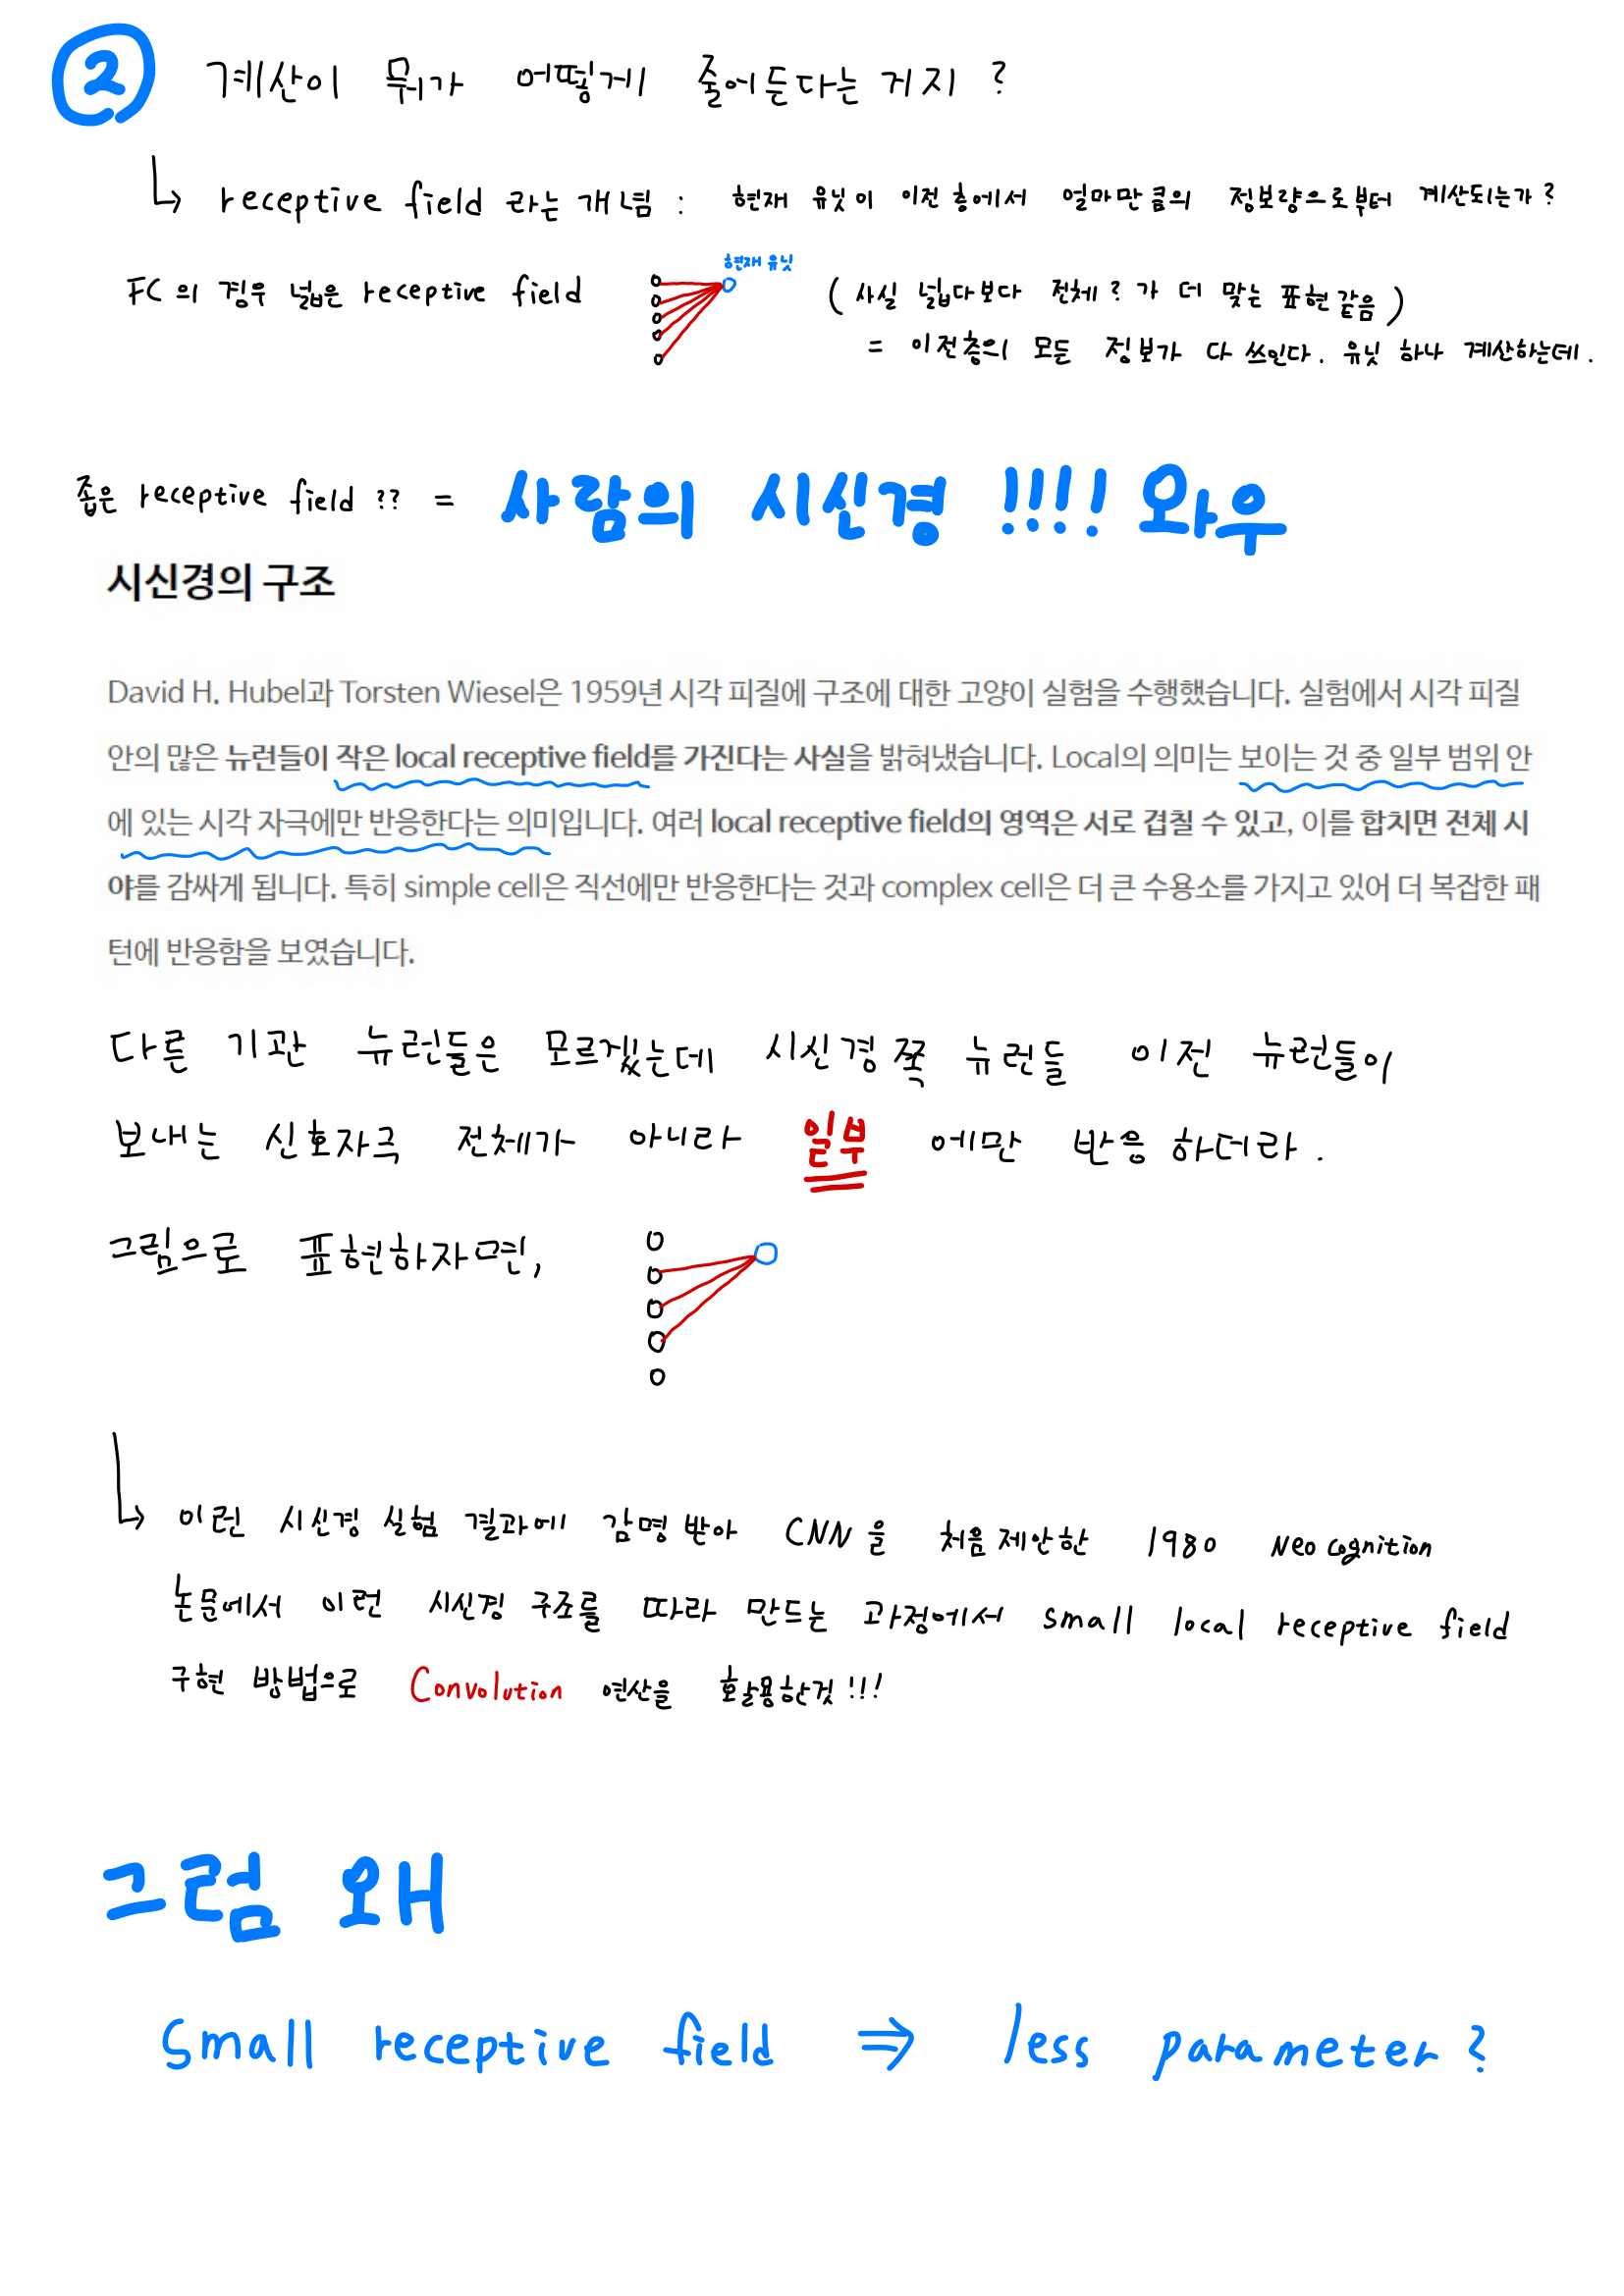 2 계산이 뭐가 어떻게 줄어든다는 거지 ?
receptive field 라는 개념 : 현재 유닛이 이전 층에서 얼마만큼의 정보량으로부터 계산되는가 ?
현재 유닛
FC의 경우 넓은 receptive field ( 사실 넓다보다 전체 ? 가 더 맞는 표현 같음 )
= 이전층의 모든 정보가 다 쓰인다. 유닛 하나 계산하는데.
좁은 receptive field ?? = 사람의 시신경 !!!! 와우
시신경의 구조
David H. Hubel과 Torsten Wiesel은 1959년 시각 피질에 구조에 대한 고양이 실험을 수행했습니다. 실험에서 시각 피질
안의 많은 뉴런들이 작은 local receptive field를 가진다는 사실을 밝혀냈습니다. Local의 의미는 보이는 것 중 일부 범위 안
에 있는 시각 자극에만 반응한다는 의미입니다. 여러 local receptive field의 영역은 서로 겹칠 수 있고, 이를 합치면 전체 시
야를 감싸게 됩니다. 특히 simple cell은 직선에만 반응한다는 것과 complex cell은 더 큰 수용소를 가지고 있어 더 복잡한 패
턴에 반응함을 보였습니다.
다른 기관 뉴런들은 모르겠는데 시신경쪽 뉴런들 이전 뉴런들이
보내는 신호자극 전체가 아니라 일부 에만 반응 하더라 .
그림으로 표현하자면,
이런 시신경 실험 결과에 감명 받아 CNN을 처음 제안한 1980 Neo cognition
논문에서 이런 시신경 구조를 따라 만드는 과정에서 small local receptive field
구현 방법으로 Convolution 연산을 활용한것 !!!
그럼 왜
Small receptive field ⇒ less parameter ?